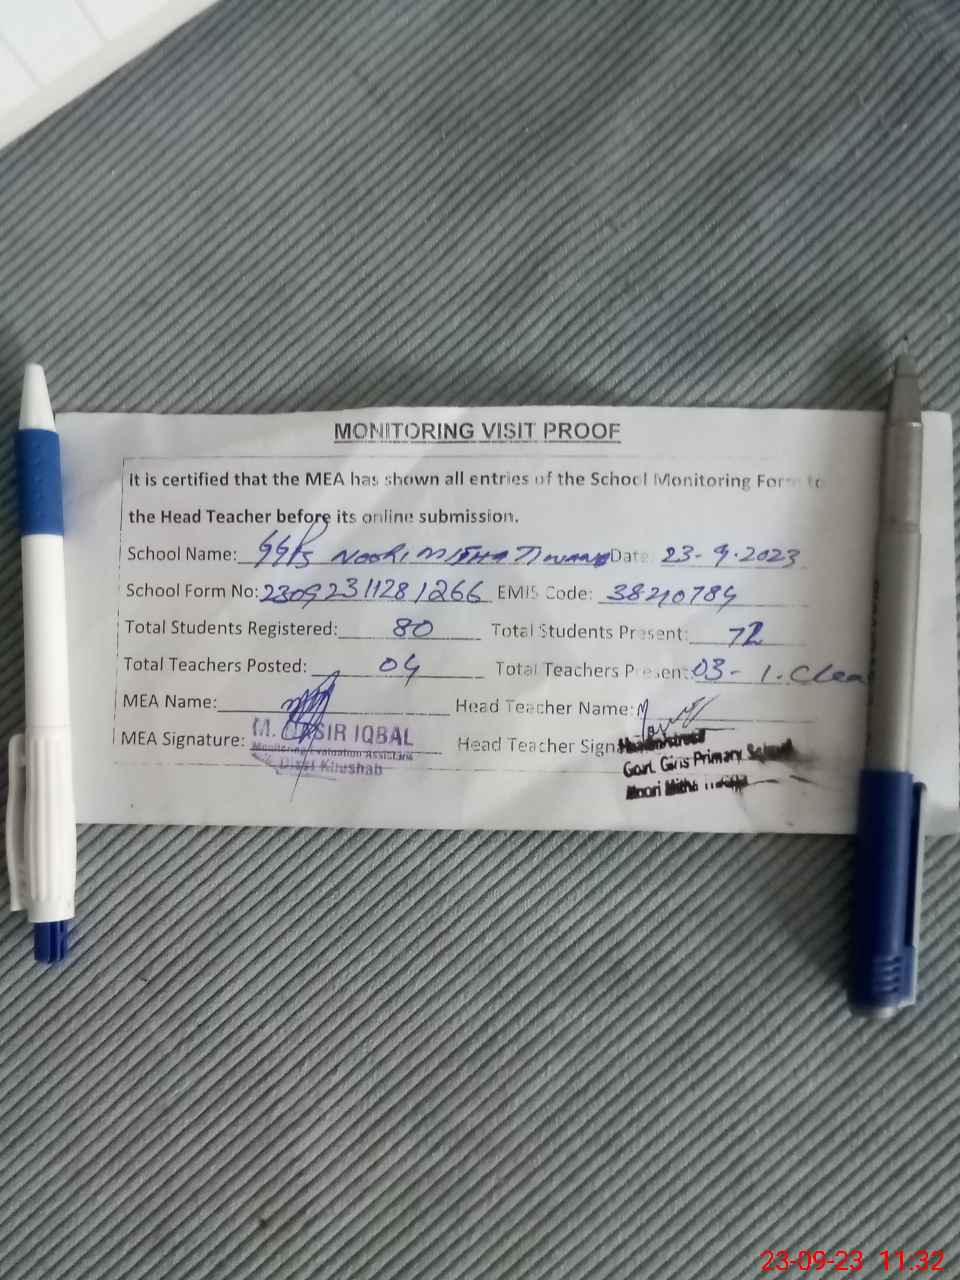 MONITORING VISIT PROOF
It is certified that the MEA has shown all entries of the School Monitoring Form to
the Head Teacher before its online submission.
School Name: GGPS NOORI MITHA TIWANA Date: 23-9-2023
School Form No: 230923112811266 EMIS Code: 38210784
Total Students Registered: 80 Total Students Present: 72
Total Teachers Posted: 04 Total Teachers Present: 03 - 1. Clea
MEA Name: Head Teacher Name:
MEA Signature: Head Teacher Sign
M. IQBAL
Monitoring Evaluation Assistant
Distt Khushab
Govt. Girls Primary School
Noori Mitha
23-09-23 11:32